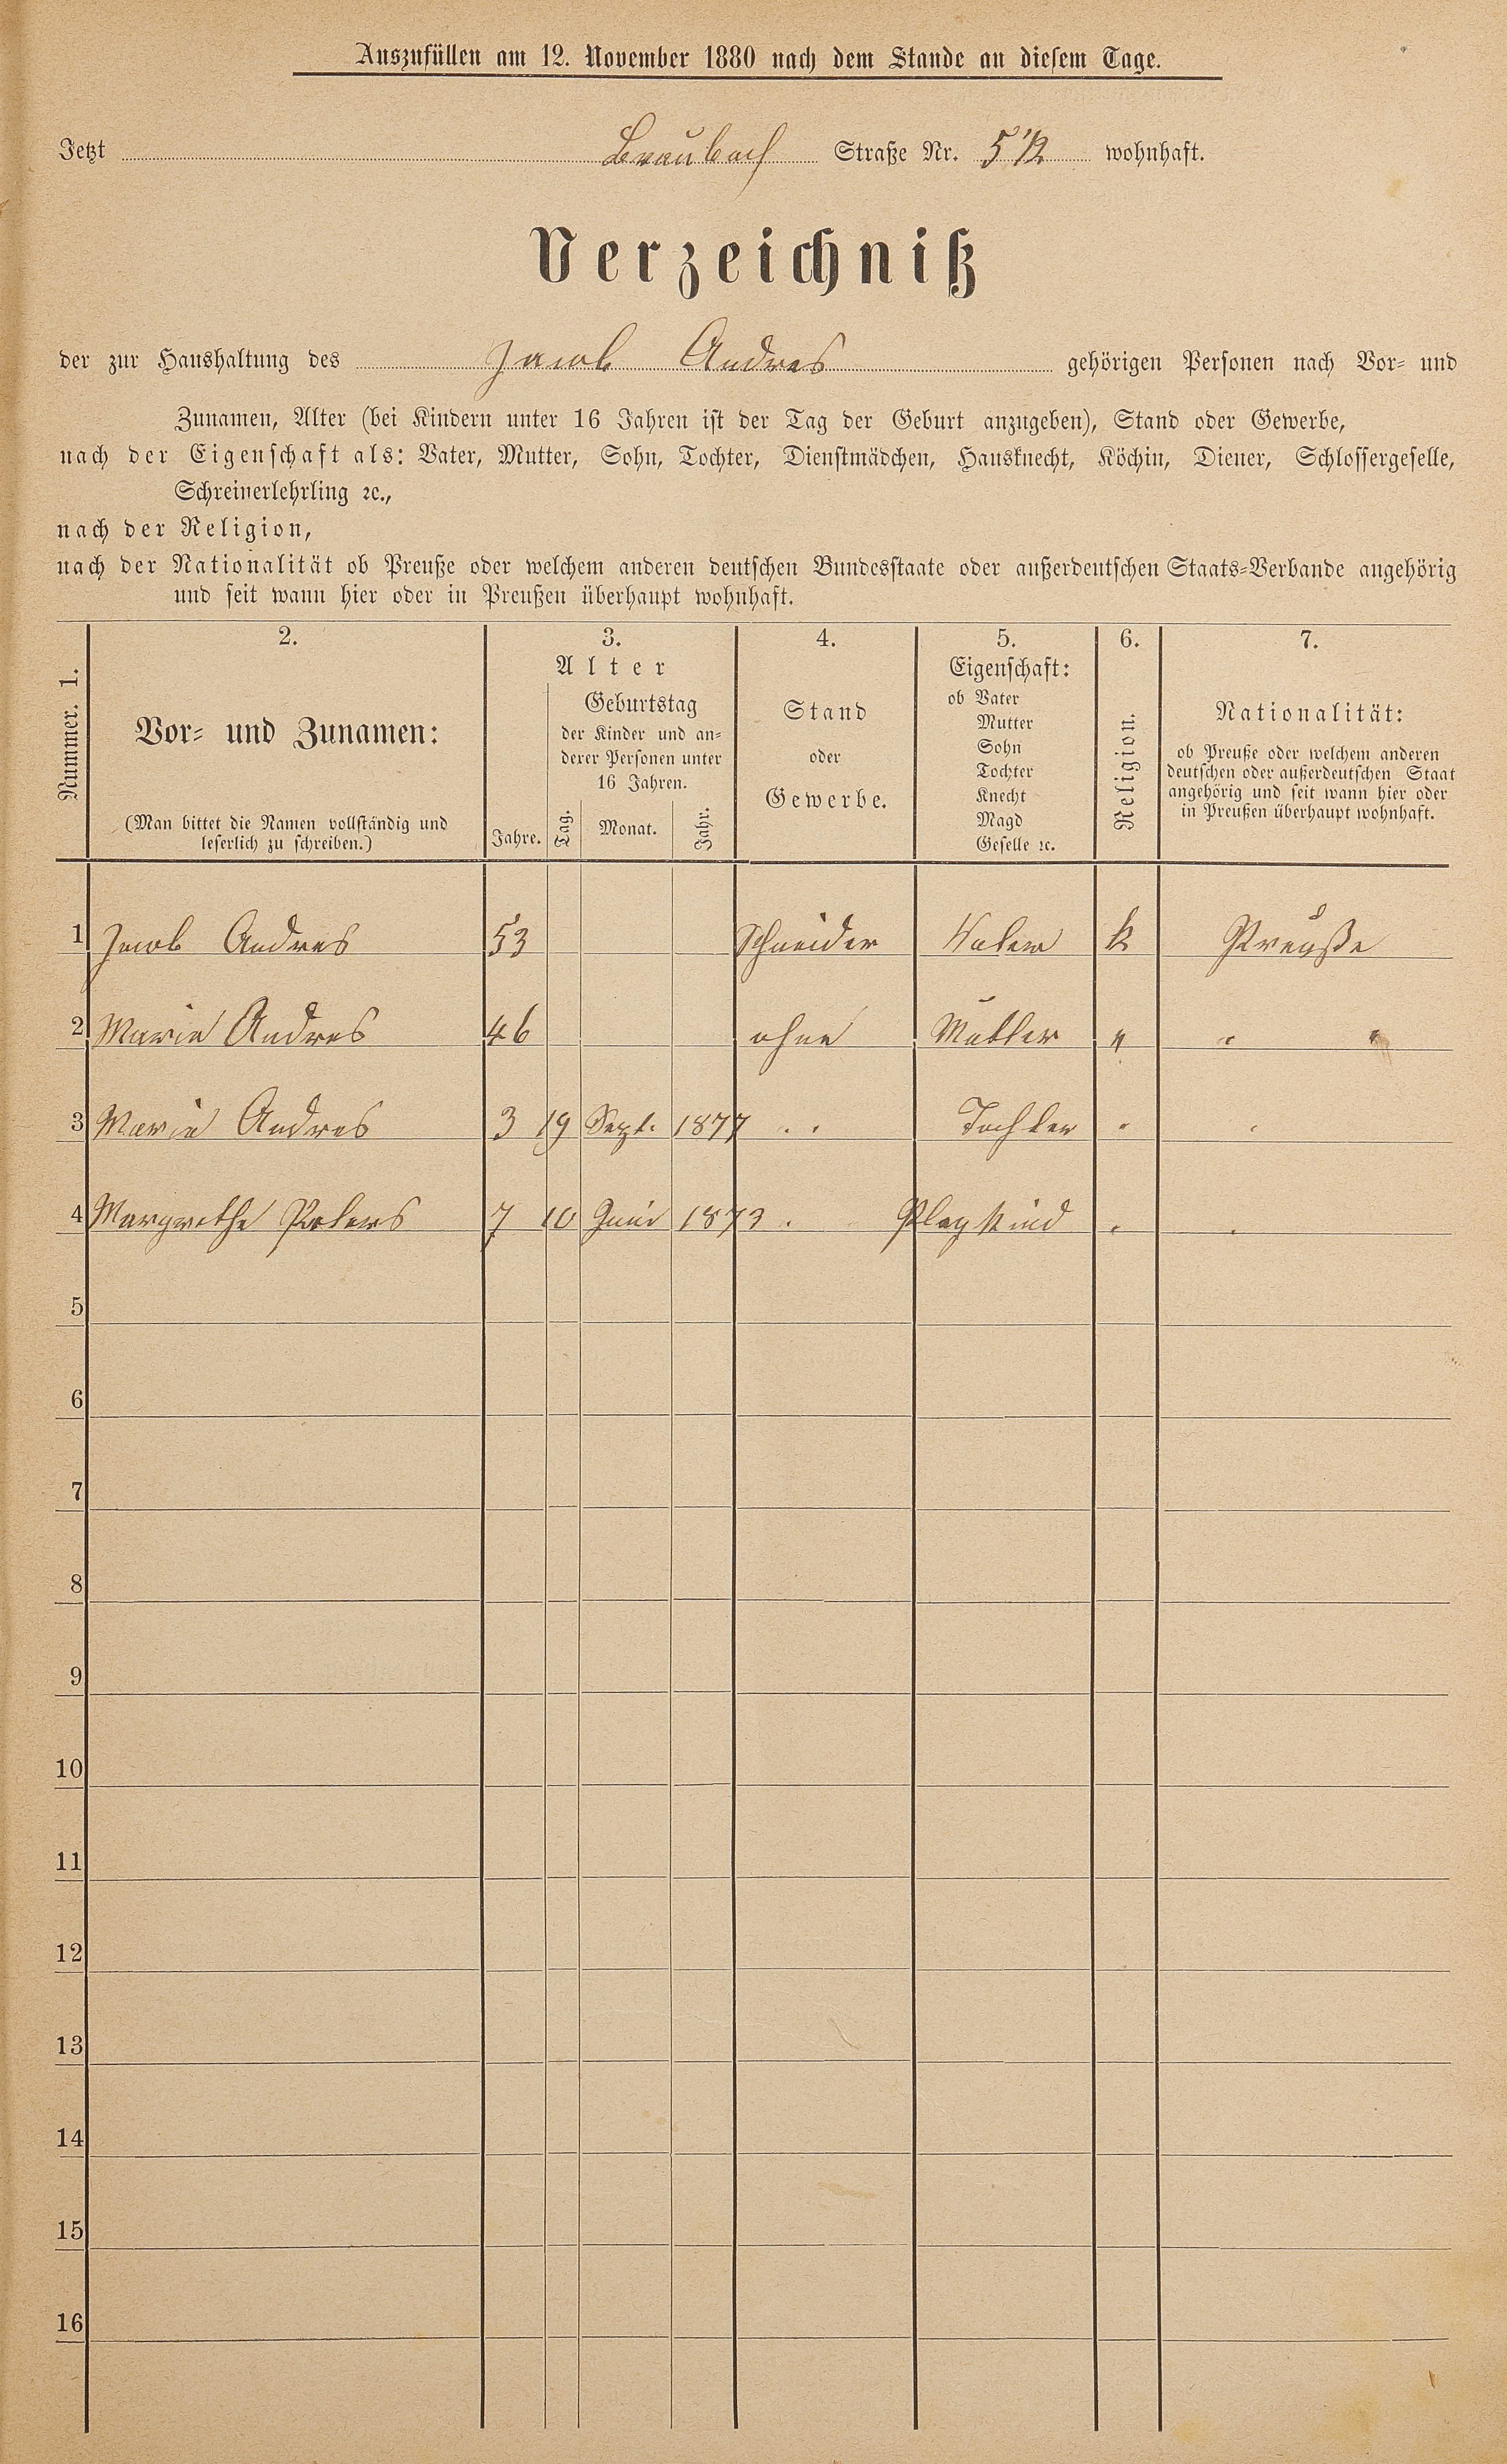 Auszufüllen am 12. November 1880 nach dem Stande an diesem Tage.
Jetzt Braubach Straße Nr. wohnhaft.
Verzeichniß
der zur Haushaltung des Jacob Andres gehörigen Personen nach Vor- und
Zunamen, Alter (bei Kindern unter 16 Jahren ist der Tag der Geburt anzugeben), Stand oder Gewerbe,
nach der Eigenschaft als: Vater, Mutter, Sohn, Tochter, Dienstmädchen, Hausknecht, Köchin, Diener, Schlossergeselle,
Schreinerlehrling ꝛc.,
nach der Religion,
nach der Nationalität ob Preuße oder welchem anderen deutschen Bundesstaate oder außerdeutschen Staats-Verbande angehörig
und seit wann hier oder in Preußen überhaupt wohnhaft.
Nummer. 1.
2.
Vor- und Zunamen:
(Man bittet die Namen vollständig und
leserlich zu schreiben.)
3.
Alter
Jahre.
Geburtstag
der Kinder und an-
derer Personen unter
16 Jahren.
Tag. Monat. Jahr.
4.
Stand
oder
Gewerbe.
5.
Eigenschaft:
ob Vater
Mutter
Sohn
Tochter
Knecht
Magd
Geselle ꝛc.
6.
Religion.
7.
Nationalität:
ob Preuße oder welchem anderen
deutschen oder außerdeutschen Staat
angehörig und seit wann hier oder
in Preußen überhaupt wohnhaft.
1 Jacob Andres 53 Schneider Vater k Preuße
2 Marie Andres 46 ohne Mutter " " "
3 Marie Andres 3 19 Sept. 1877 " Tochter " "
4 Margrethe Peters 7 10 Juni 1873 " Plegkind " "
5
6
7
8
9
10
11
12
13
14
15
16